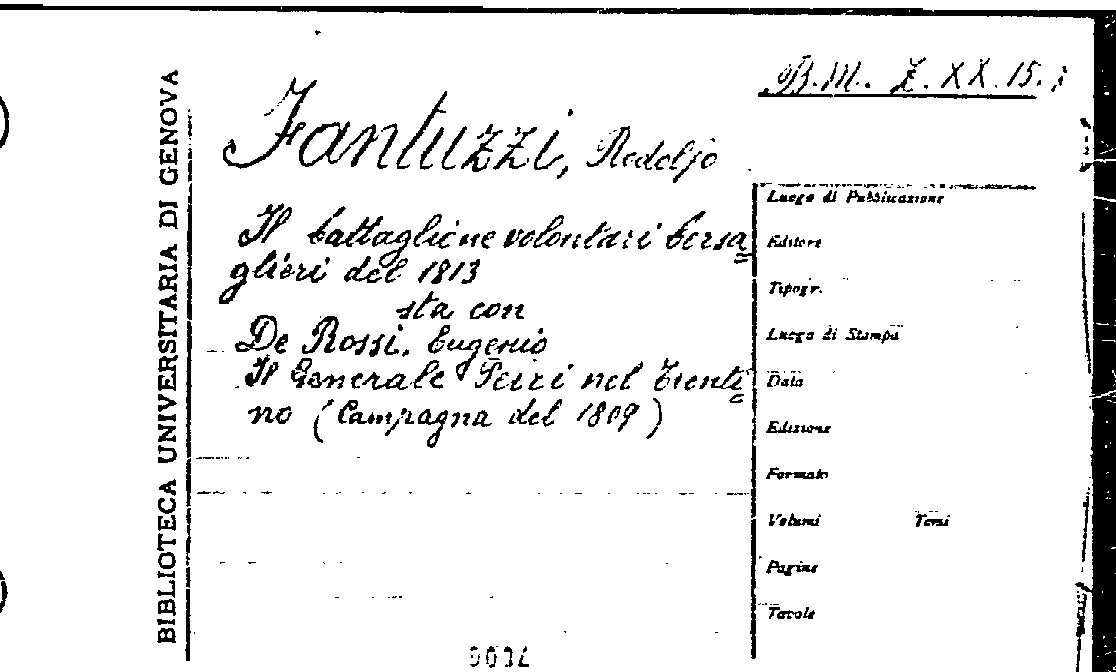 BIBLIOTECA UNIVERSITARIA DI GENOVA
B.M. Z. XX. 15.
Fantuzzi, Rodolfo
Il battaglione volontari bersa
glieri del 1813
sta con
De Rossi, Eugenio
Il Generale Peiri nel Trenti
no (Campagna del 1809)
Luogo di Pubblicazione
Editore
Tipogr.
Luogo di Stampa
Data
Edizione
Formato
Volumi Tomi
Pagine
Tavole